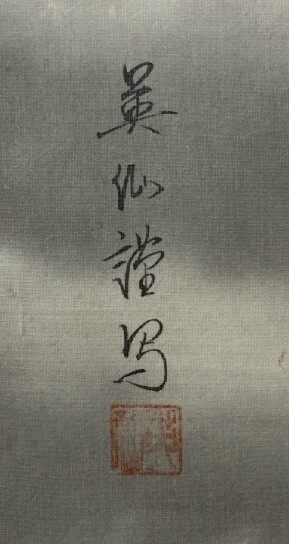 英仙謹写